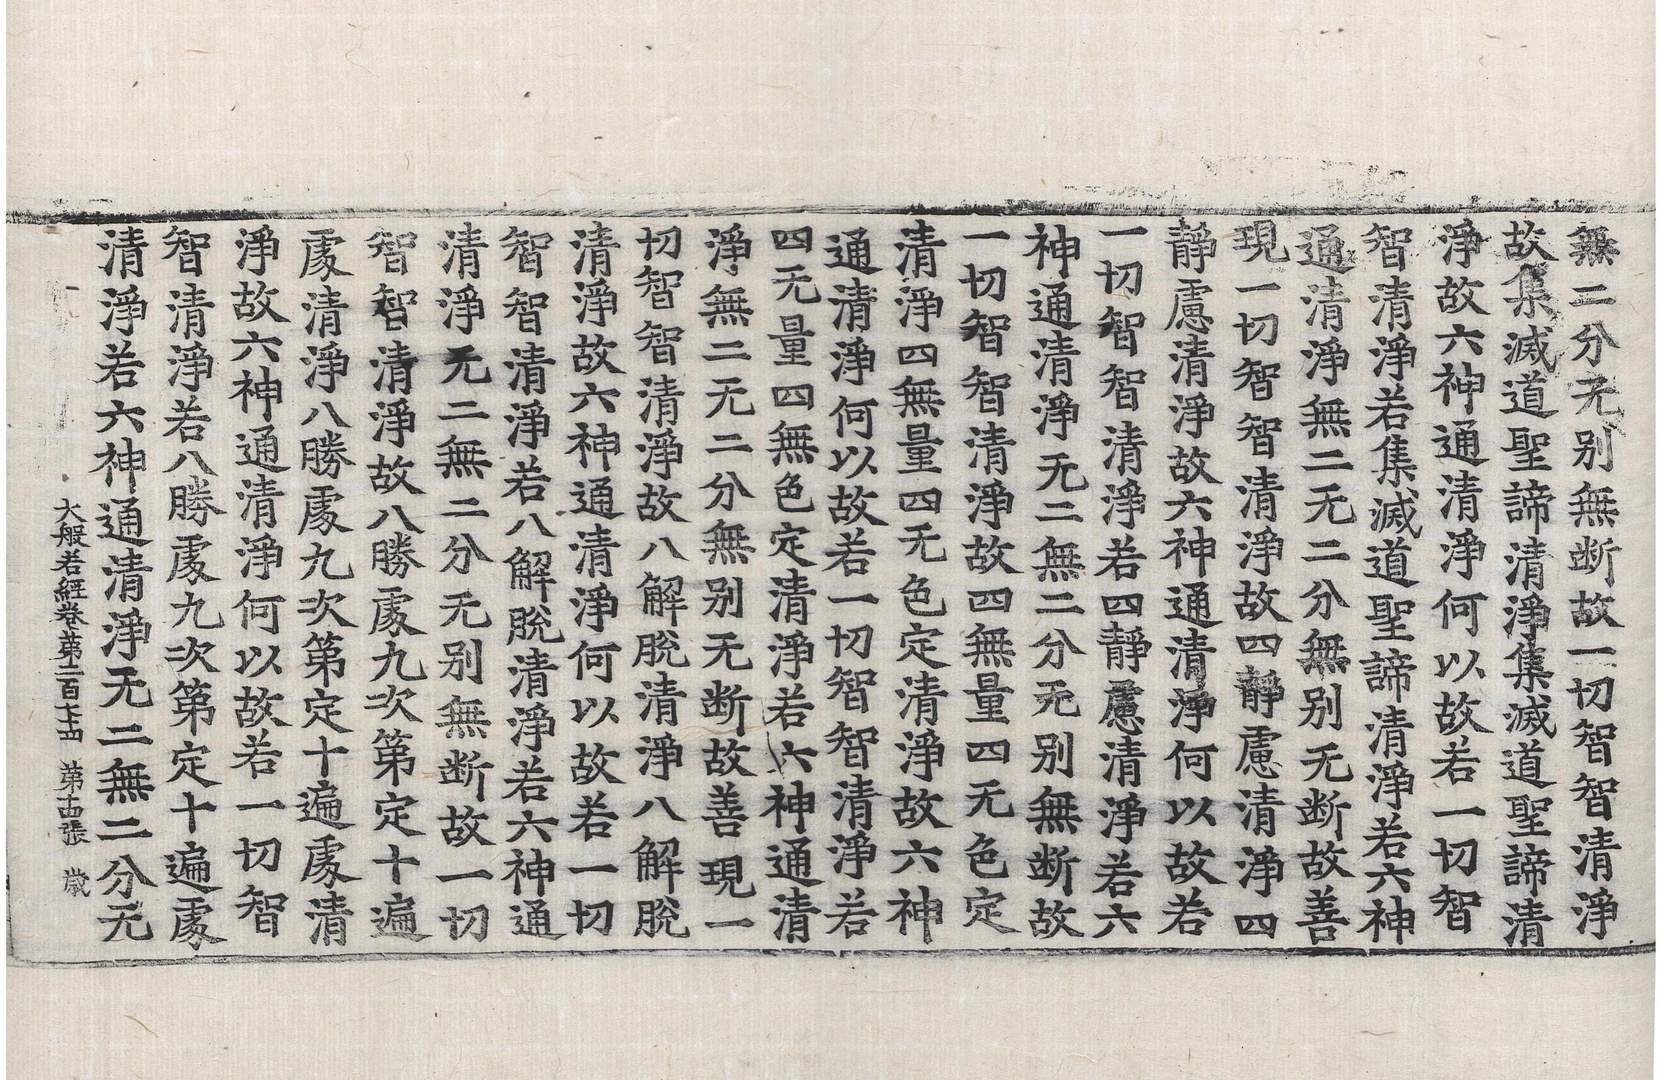 無二分无别無断故一切智智清淨
故集滅道聖諦清淨集滅道聖諦清
淨故六神通清淨何以故若一切智
智清淨若集滅道聖諦清淨若六神
通清淨無二无二分無别无断故善
現一切智智清淨故四靜慮清淨四
靜慮清淨故六神通清淨何以故若
一切智智清淨若四靜慮清淨若六
神通清淨无二無二分无别無断故
一切智智清淨故四無量四无色定
清淨四無量四无色定清淨故六神
通清淨何以故若一切智智清淨若
四无量四無色定清淨若六神通清
淨無二无二分無别无断故善現一
切智智清淨故八解脫清淨八解脫
清淨故六神通清淨何以故若一切
智智清淨若八解脫清淨若六神通
清淨无二無二分无别無断故一切
智智清淨故八勝處九次第定十遍
處清淨八勝處九次第定十遍處清
淨故六神通清淨何以故若一切智
智清淨若八勝處九次第定十遍處
清淨若六神通清淨无二無二分无
大般若經卷第二百七十四 第十四張 歲